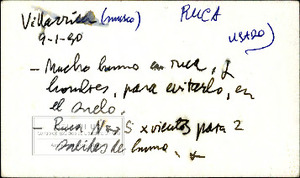 Villarrica (museo) RUCA
9-1-90 USADO)
- Mucho humo en ruca, y
hombres, para evitarlo, en
el suelo.
- Ruca N → S x vientos para 2
salidas de humo.